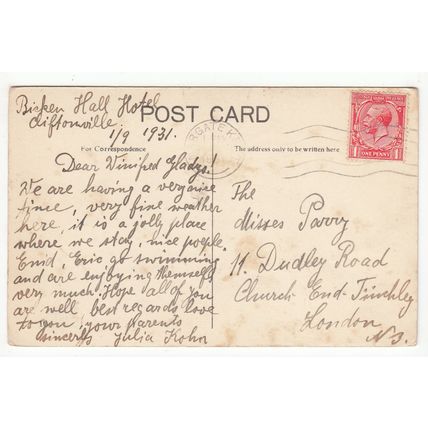 Bicken Hall Hotel
Cliftonville.
1/9 1931.
POST CARD
For Correspondence
The address only to be written here
MARGATE K
ONE PENNY
Dear Winifred Gladys!
We are having a very nice
time, very fine weather
here, it is a jolly place
where we stay, nice people.
Enid, Eric go swimming
and are enjoying themself
very much. Hope all of you
are well, best regards love
to you, your parents
sincerly Julia Kohn
The
Misses Parry
11. Dudley Road
Church-End-Finchley
London
N3.